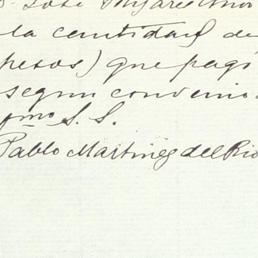 José
la cantidad de
pesos) que pag
segun convenio
S. S.
Pablo Martinez del Rio